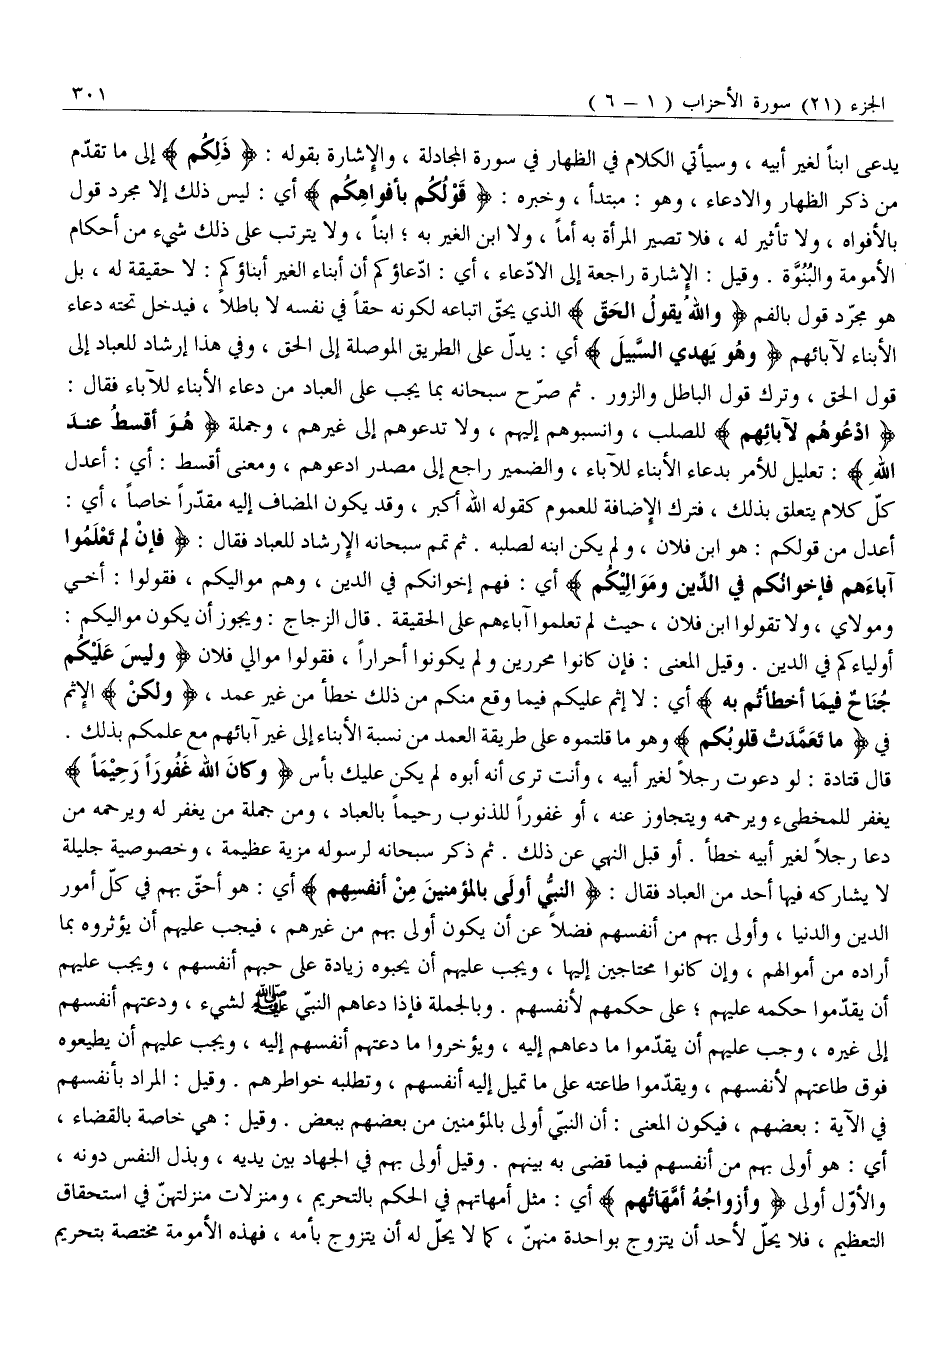 الجزء (٢١) سورة الأحزاب ( ١ – ٦ )
٣٠١
يدعى ابناً لغير أبيه ، وسيأتي الكلام في الظهار في سورة المجادلة ، والإشارة بقوله : ﴿ ذَلِكُم ﴾ إلى ما تقدّم
من ذكر الظهار والادعاء ، وهو : مبتدأ ، وخبره : ﴿ قَوْلُكُم بأفواهِكُم ﴾ أي : ليس ذلك إلا مجرد قول
بالأفواه ، ولا تأثير له ، فلا تصير المرأة به أماً ، ولا ابن الغير به ؛ ابناً ، ولا يترتب على ذلك شيء من أحكام
الأمومة والبُنُوَّة . وقيل : الإشارة راجعة إلى الادّعاء ، أي : ادّعاؤكم أن أبناء الغير أبناؤكم : لا حقيقة له ، بل
هو مجرّد قول بالفم ﴿ واللهُ يقولُ الحَقّ ﴾ الذي يحقّ اتباعه لكونه حقاً في نفسه لا باطلاً ، فيدخل تحته دعاء
الأبناء لآبائهم ﴿ وهُو يَهدي السَّبيلَ ﴾ أي : يدلّ على الطريق الموصلة إلى الحق ، وفي هذا إرشاد للعباد إلى
قول الحق ، وترك قول الباطل والزور . ثم صرّح سبحانه بما يجب على العباد من دعاء الأبناء للآباء فقال :
﴿ ادْعُوهُم لآبائِهم ﴾ للصلب ، وانسبوهم إليهم ، ولا تدعوهم إلى غيرهم ، وجملة ﴿ هُوَ أقسطُ عندَ
اللهِ ﴾ : تعليل للأمر بدعاء الأبناء للآباء ، والضمير راجع إلى مصدر ادعوهم ، ومعنى أقسط : أي : أعدل
كلّ كلام يتعلق بذلك ، فترك الإضافة للعموم كقوله الله أكبر ، وقد يكون المضاف إليه مقدّراً خاصاً ، أي :
أعدل من قولكم : هو ابن فلان ، ولم يكن ابنه لصلبه . ثم تمم سبحانه الإرشاد للعباد فقال : ﴿ فإنْ لم تَعْلَمُوا
آباءَهم فإخوانُكم في الدِّين ومَوَالِيْكُم ﴾ أي : فهم إخوانكم في الدين ، وهم مواليكم ، فقولوا : أخي
ومولاي ، ولا تقولوا ابن فلان ، حيث لم تعلموا آباءهم على الحقيقة . قال الزجاج : ويجوز أن يكون مواليكم :
أولياءكم في الدين . وقيل المعنى : فإن كانوا محررين ولم يكونوا أحراراً ، فقولوا موالي فلان ﴿ وليسَ عَلَيْكُم
جُنَاحٌ فيمَا أخطأتُم به ﴾ أي : لا إثم عليكم فيما وقع منكم من ذلك خطأ من غير عمد ، ﴿ ولكنْ ﴾ الإثم
في ﴿ ما تَعَمَّدَتْ قلوبُكم ﴾ وهو ما قلتموه على طريقة العمد من نسبة الأبناء إلى غير آبائهم مع علمكم بذلك .
قال قتادة : لو دعوت رجلاً لغير أبيه ، وأنت ترى أنه أبوه لم يكن عليك بأس ﴿ وكانَ الله غَفُورَاً رَحِيْمَاً ﴾
يغفر للمخطىء ويرحمه ويتجاوز عنه ، أو غفوراً للذنوب رحيماً بالعباد ، ومن جملة من يغفر له ويرحمه من
دعا رجلاً لغير أبيه خطأ . أو قبل النهي عن ذلك . ثم ذكر سبحانه لرسوله مزية عظيمة ، وخصوصية جليلة
لا يشاركه فيها أحد من العباد فقال : ﴿ النبيُّ أولَى بالمؤمنينَ مِنْ أنفسِهم ﴾ أي : هو أحقّ بهم في كلّ أمور
الدين والدنيا ، وأولى بهم من أنفسهم فضلاً عن أن يكون أولى بهم من غيرهم ، فيجب عليهم أن يؤثروه بما
أراده من أموالهم ، وإن كانوا محتاجين إليها ، ويجب عليهم أن يحبوه زيادة على حبهم أنفسهم ، ويجب عليهم
أن يقدّموا حكمه عليهم ؛ على حكمهم لأنفسهم . وبالجملة فإذا دعاهم النبيّ ﷺ لشيء ، ودعتهم أنفسهم
إلى غيره ، وجب عليهم أن يقدّموا ما دعاهم إليه ، ويؤخروا ما دعتهم أنفسهم إليه ، ويجب عليهم أن يطيعوه
فوق طاعتهم لأنفسهم ، ويقدّموا طاعته على ما تميل إليه أنفسهم ، وتطلبه خواطرهم . وقيل : المراد بأنفسهم
في الآية : بعضهم ، فيكون المعنى : أن النبيّ أولى بالمؤمنين من بعضهم ببعض . وقيل : هي خاصة بالقضاء ،
أي : هو أولى بهم من أنفسهم فيما قضى به بينهم . وقيل أولى بهم في الجهاد بين يديه ، وبذل النفس دونه ،
والأوّل أولى ﴿ وأزواجُهُ أمَّهاتُهم ﴾ أي : مثل أمهاتهم في الحكم بالتحريم ، ومنزلات منزلتهنّ في استحقاق
التعظيم ، فلا يحلّ لأحد أن يتزوج بواحدة منهنّ ، كما لا يحلّ له أن يتزوج بأمه ، فهذه الأمومة مختصة بتحريم